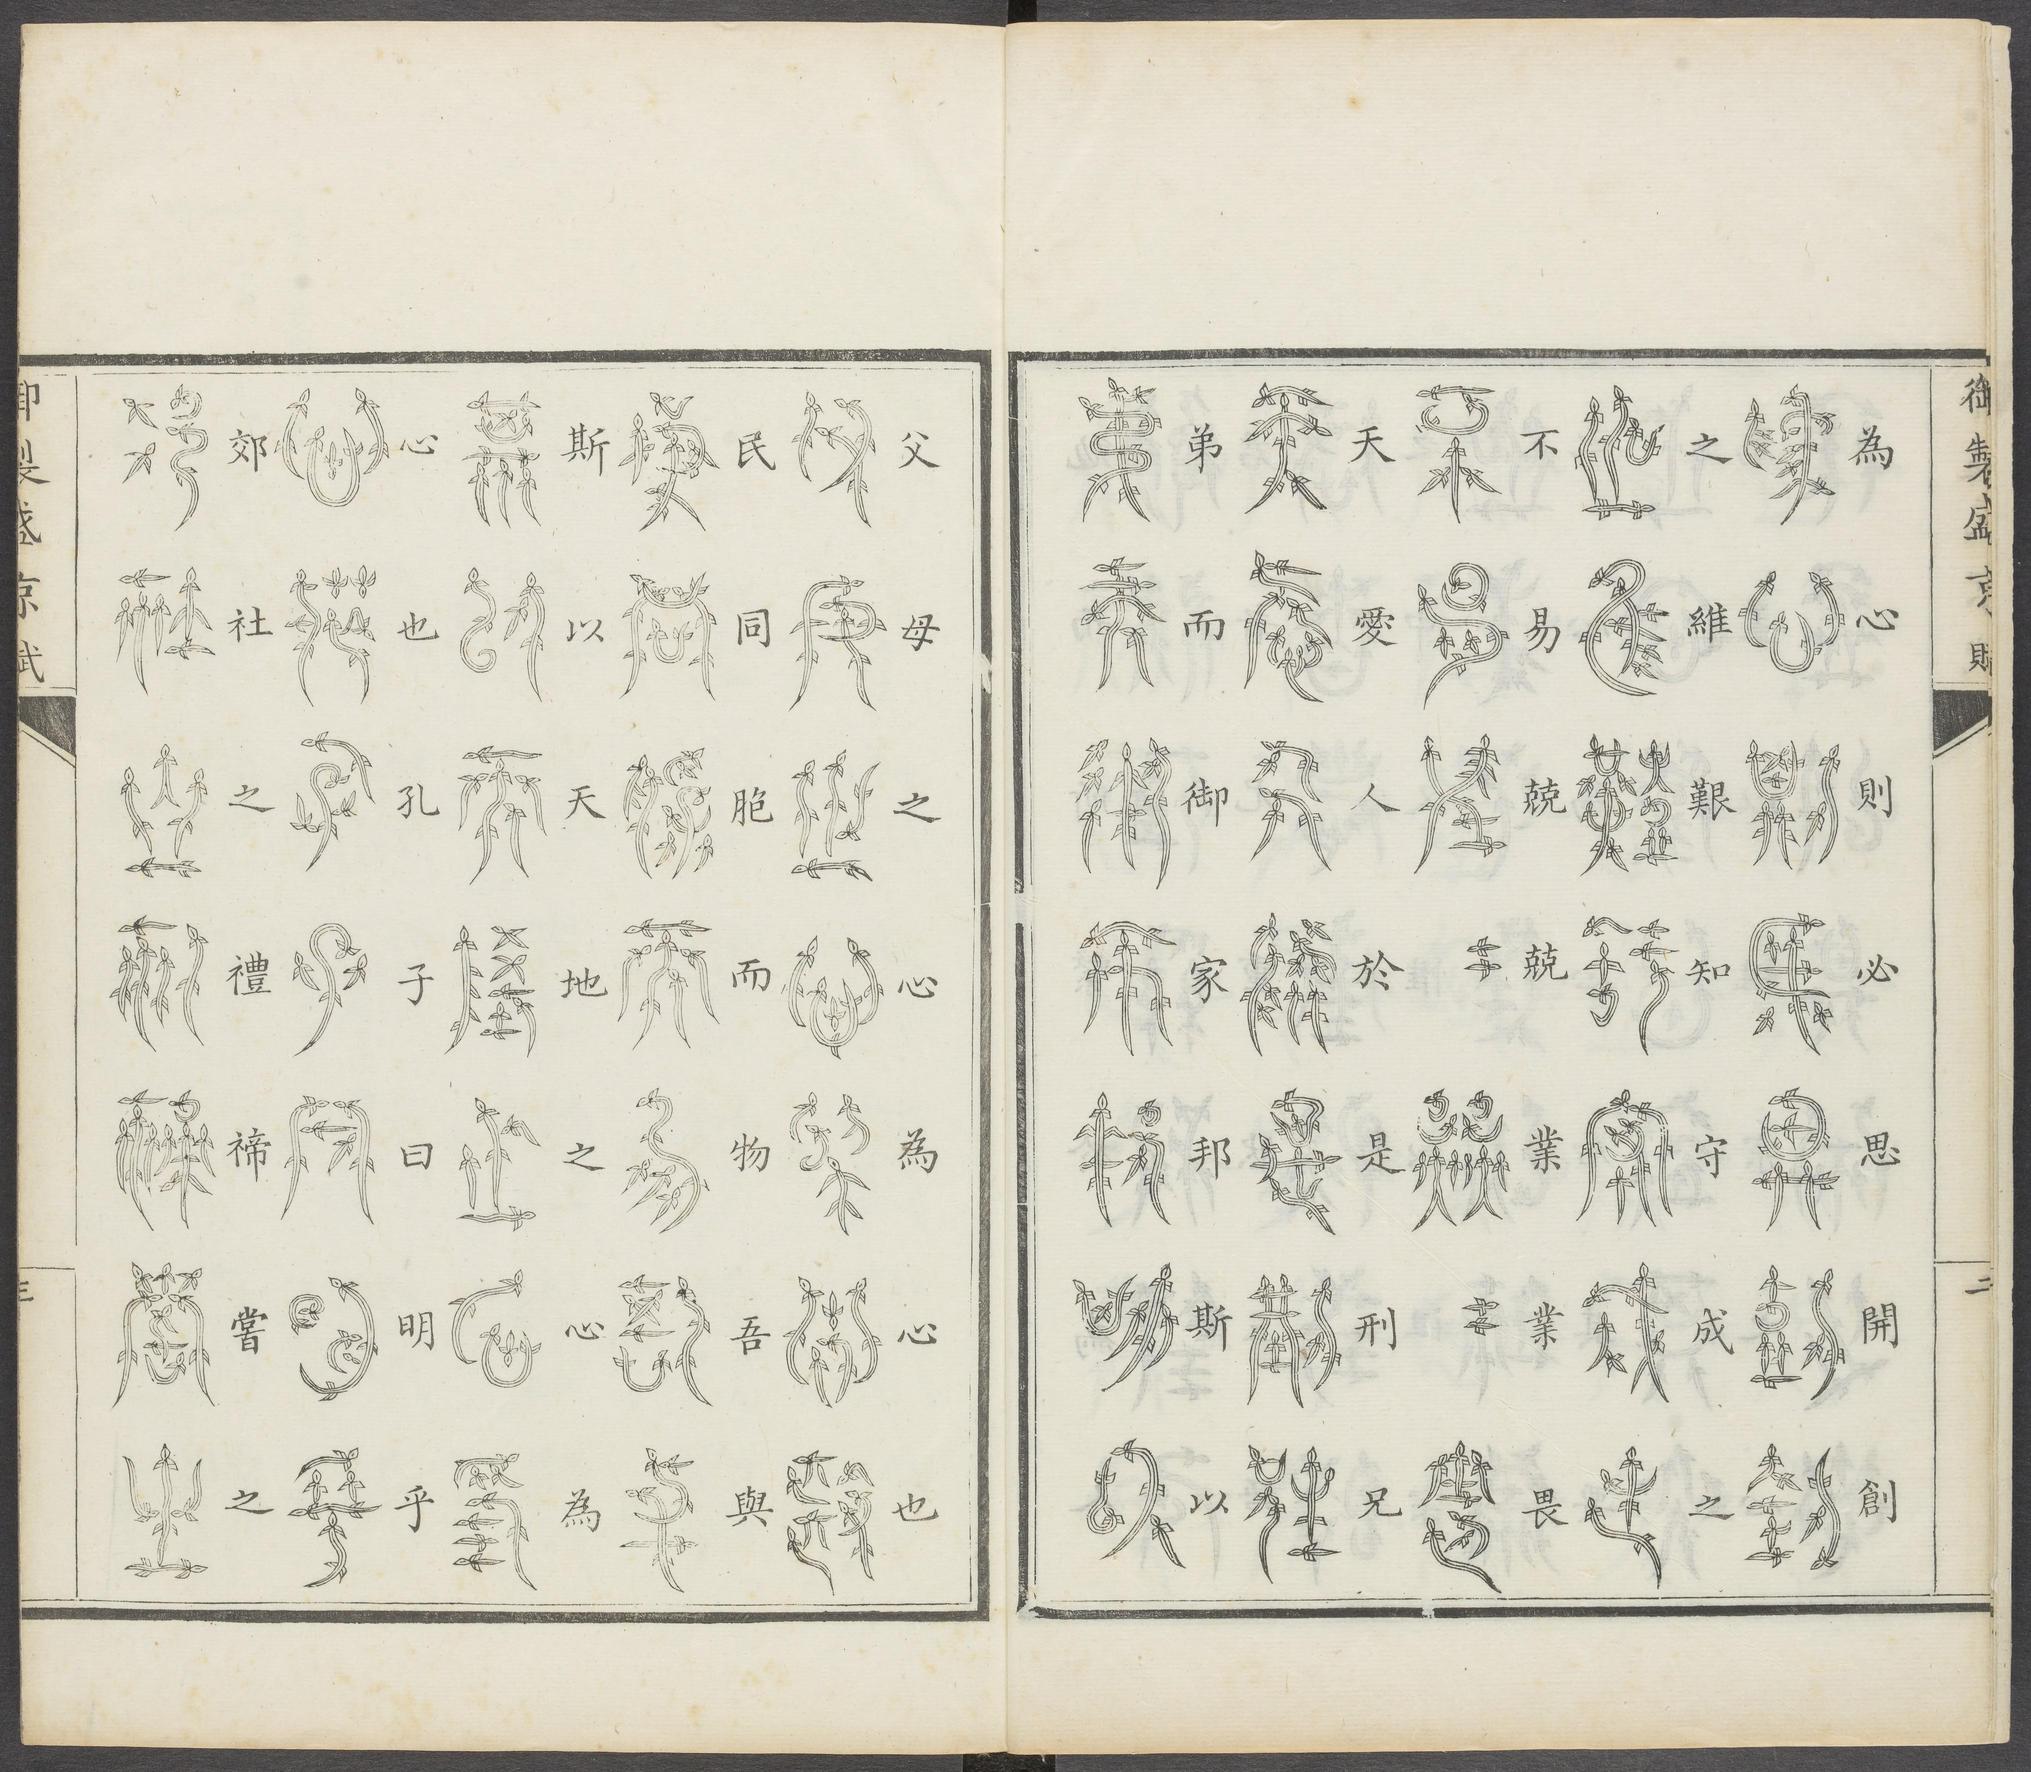 御製盛京賦
二
為心則必思開創
之維艱知守成之
不易兢兢業業畏
天愛人於是刑兄
弟而御家邦斯以
父母之心為心也
民同胞而物吾與
斯以天地之心為
心也孔子曰明乎
郊社之禮禘嘗之
御製盛京賦
三